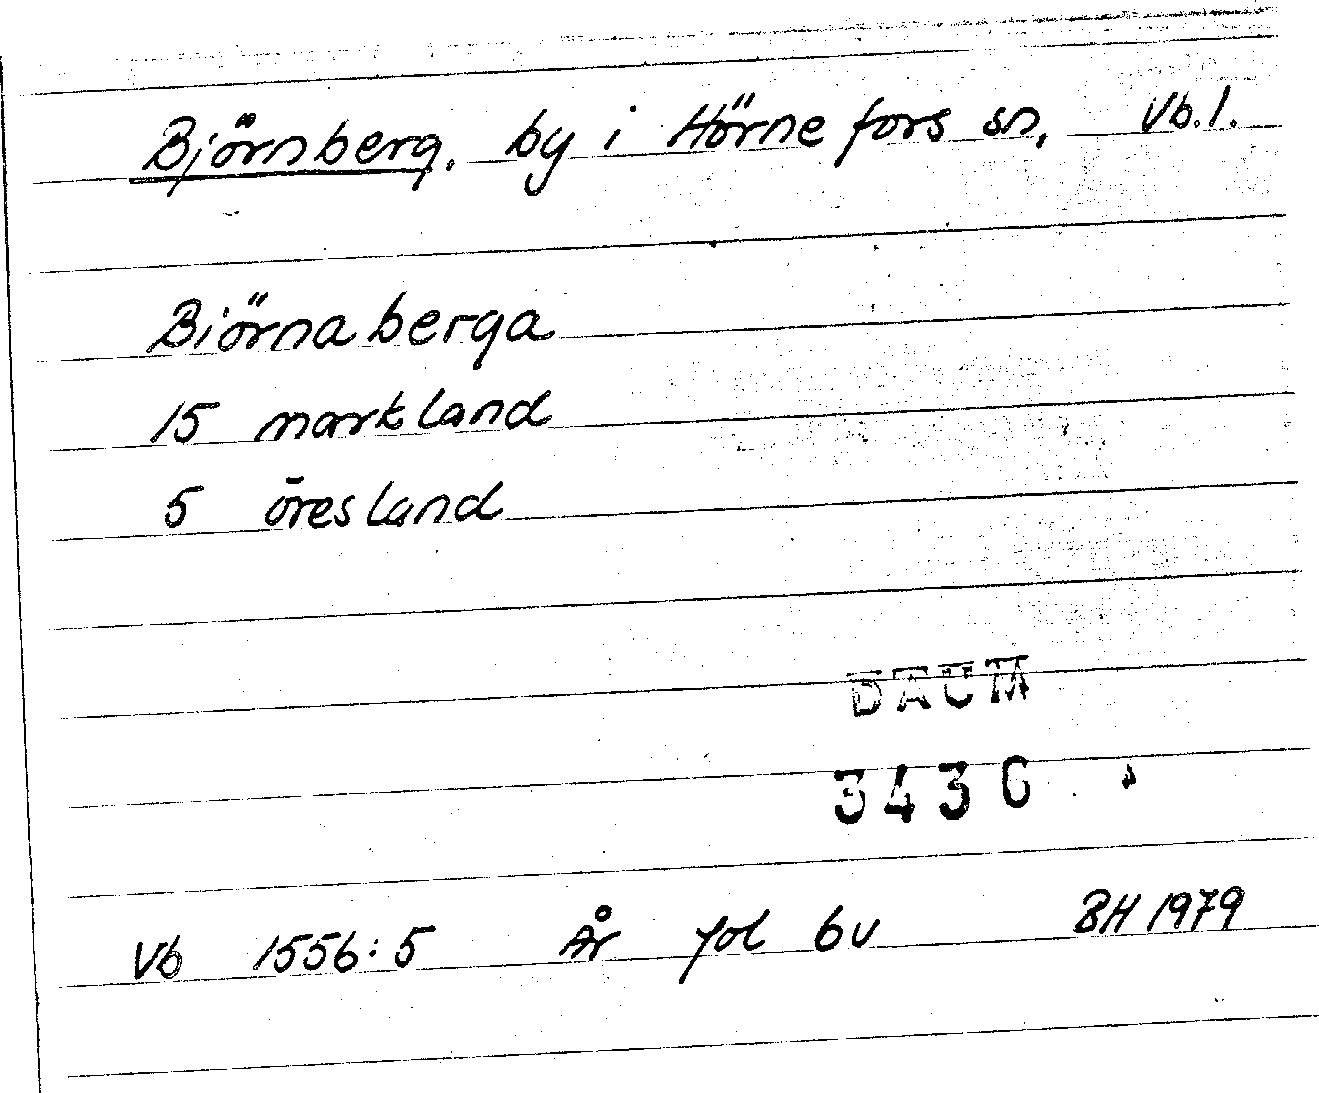 Björnberg. by i Hörnefors sn, Vb.l.
Biörnaberga
15 markland
5 öresland
DAUM
3430
Vb 1556:5 År fol 6v BH 1979